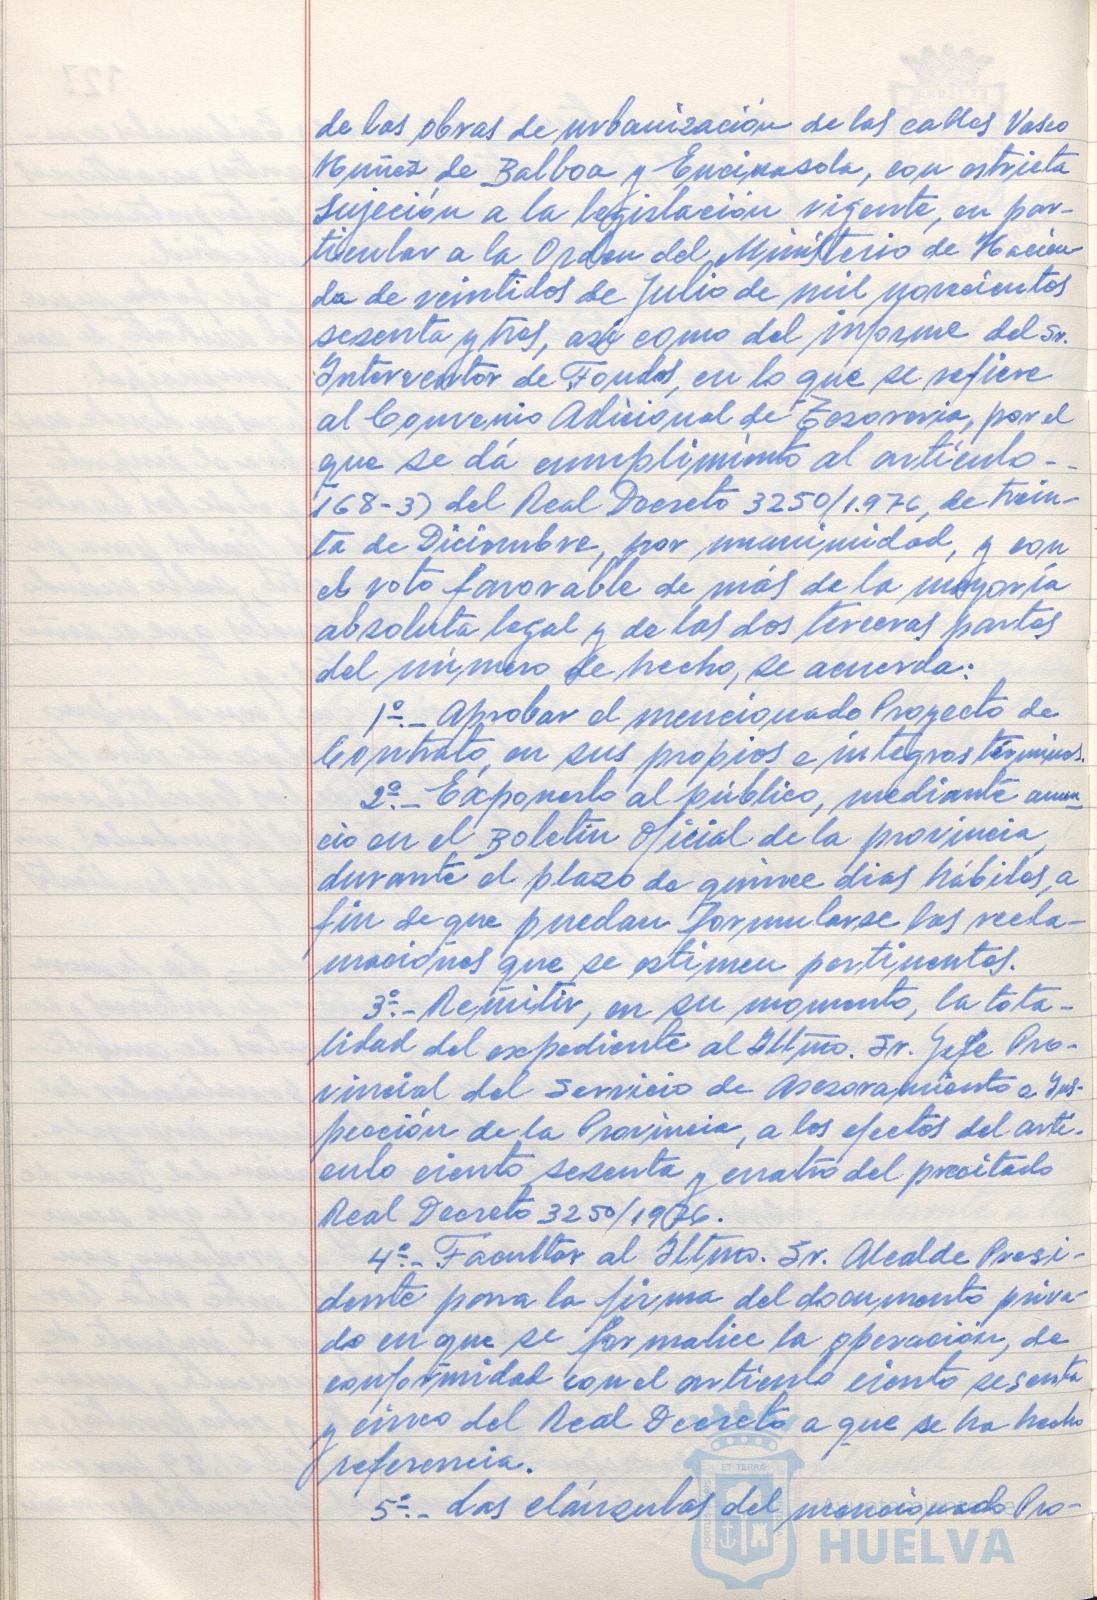 de las obras de urbanización de las calles Vasco
Nuñez de Balboa y Encinasola, con estricta
sujeción a la legislación vigente, en par-
ticular a la Orden del Ministerio de Hacien-
da de veintidos de Julio de mil novecientos
sesenta y tres, así como del informe del Sr.
Interventor de Fondos, en lo que se refiere
al Convenio Adicional de Tesoreria, por el
que se dá cumplimiento al artículo--
168-3) del Real Decreto 3250/1.976, de trein-
ta de Diciembre, por unanimidad, y con
el voto favorable de más de la mayoría
absoluta legal y de las dos terceras partes
del número de hecho, se acuerda:
1º.- Aprobar el mencionado Proyecto de
Contrato, en sus propios e íntegros términos.
2º.- Exponerlo al público, mediante anun-
cio en el Boletín Oficial de la provincia,
durante el plazo de quince dias hábiles, a
fin de que puedan formularse las recla-
maciones que se estimen pertinentes.
3º.- Remitir, en su momento, la tota-
lidad del expediente al Iltmo. Sr. Jefe Pro-
vincial del Servicio de Asesoramiento e Ins-
pección de la Provincia, a los efectos del artí-
culo ciento sesenta y cuatro del precitado
Real Decreto 3250/1976.
4º.- Facultar al Iltmo. Sr. Alcalde Presi-
dente para la firma del documento priva-
do en que se formalice la operación, de
conformidad con el artículo ciento sesenta
y cinco del Real Decreto a que se ha hecho
referencia.
5º.- Las cláusulas del mencionado Pro-
Ayuntamiento de
HUELVA